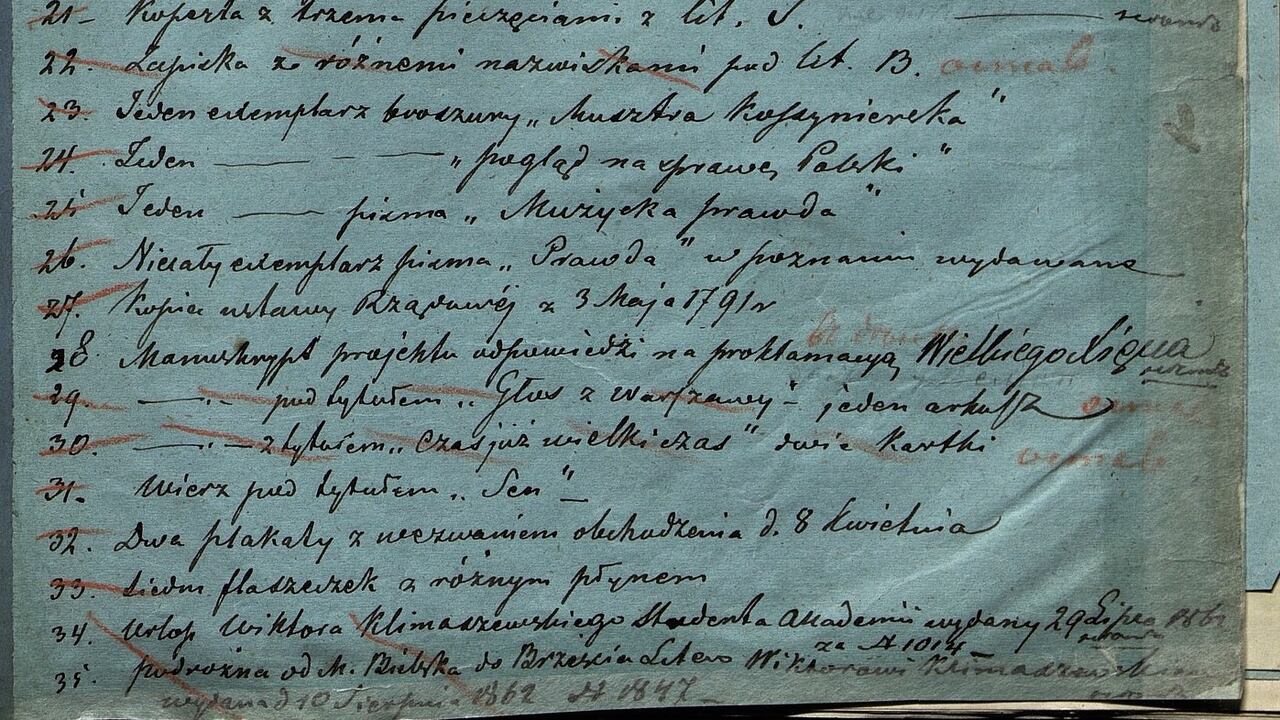 21- Koperta z trzema pieczęciami z lit. S.
22. Zapiska z różnemi nazwiskami pod lit. B.
23. Jeden exemplarz broszury „Musztra Kossynierska"
24. Jeden — „pogląd na sprawę Polski"
25 Jeden — pisma „Mużycka prawda"
26. Niecały exemplarz pisma „Prawda" w poznaniu wydawane
27. Kopia ustawy Rządowéj z 3 Maja 1791 r
28 Manuskrypt projektu odpowiedzi na proklamacyą Wielkiego Xięcia
29. —„- pod tytułem „Głos z Warszawy" – jeden arkusz
30. —„— z tytułem „Czas już wielki czas" dwie Kartki
31. Wiersz pod tytułem „Sen"
32. Dwa plakaty z wezwaniem obchodzenia d. 8 kwietnia
33. Siedm flaszeczek z różnym płynem
34. Urlop Wiktora Klimaszewskiego Studenta Akademii wydany 29 Lipca 1862
za N 1014
35. podrożna od M. Bielska do Brześcia Litews Wiktorowi Klimaszewskiemu
wydana d 10 Sierpnia 1862 N 1847